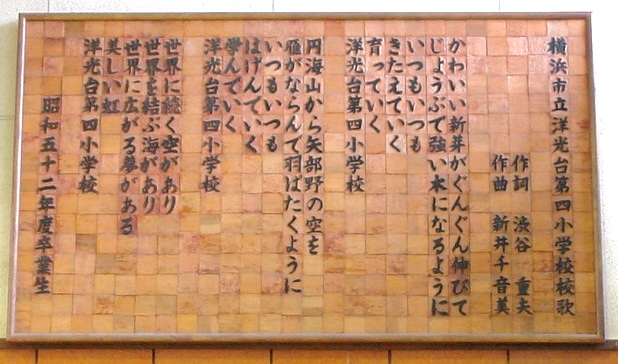 横浜市立洋光台第四小学校校歌
作詞 渋谷 重夫
作曲 新井千音美
かわいい新芽がぐんぐん伸びて
じょうぶで強い木になるように
いつもいつも
きたえていく
育っていく
洋光台第四小学校
円海山から矢部野の空を
雁がならんで羽ばたくように
いつもいつも
はげんでいく
学んでいく
洋光台第四小学校
世界に続く空があり
世界を結ぶ海があり
世界に広がる夢がある
美しい虹
洋光台第四小学校
昭和五十二年度卒業生